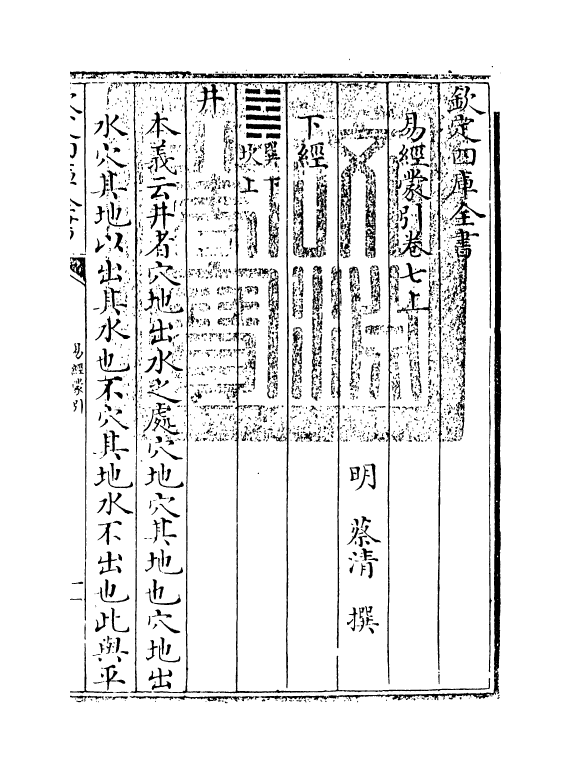 欽定四庫全書
易經蒙引卷七上
明 蔡清 撰
下經
巽下
坎上
井
本義云井者穴地出水之處穴地穴其地也穴地出
水穴其地以出其水也不穴其地水不出也此與平
易經蒙引